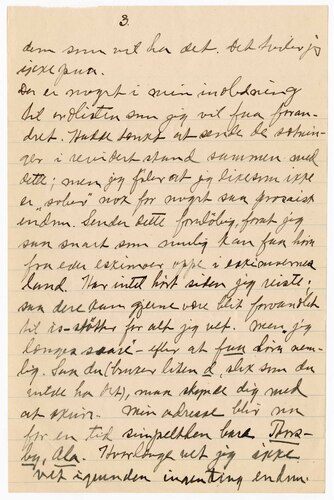 3.
dem som vil ha det. Det tviler jeg
ikke paa.
Der er noget i min indledning
til ordlisten som jeg vil faa foran-
dret. Hadde tænkt at sende de sætnin-
ger i revidert stand sammen med
dette; men jeg føler at jeg likesom ikke
er "sober" nok for noget saa prosaisk
endnu. Sender dette foreløbig, forat jeg
saa snart som mulig kan faa høre
fra eder eskimoer oppe i eskimoernes
land. Har intet hørt siden jeg reiste;
saa dere kan gjerne være blit forvandlet
til is-støtter for alt jeg vet. Men "jeg
længes saare" efter at faa høre nem-
lig. Saa du (bruker liten d, slik som du
vilde ha det), maa skynde dig med
at skrive. Min adresse blir nu
for en tid simpelthen bare Thors-
by, Ala. Hvorlænge vet jeg ikke
vet igrunden ingenting endnu.